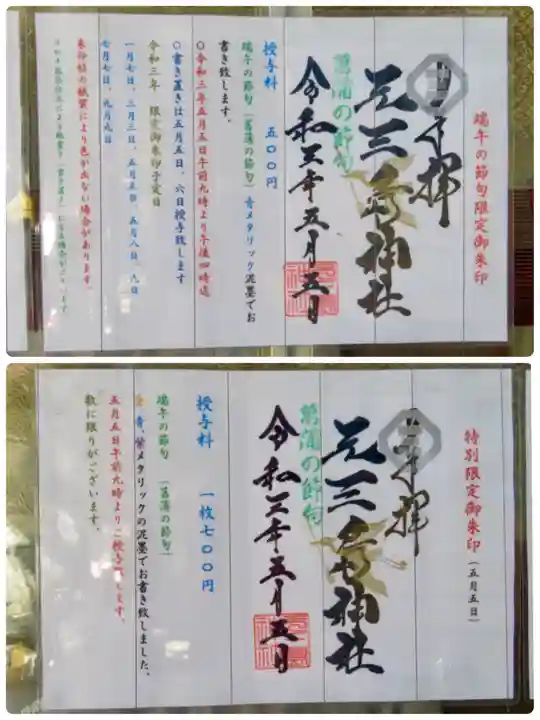 端午の節句限定御朱印
奉拝
元三島神社
菖蒲の節句
令和三年五月五日
授与料 五〇〇円
端午の節句(菖蒲の節句)青メタリック泥墨でお
書き致します。
〇令和三年五月五日午前九時より午後四時迄
〇書き置きは五月五日、六日授与致します
令和三年 限定御朱印予定日
一月七日、三月三日、五月五日、五月八日、九日
七月七日、九月九日
朱印帳の紙質により色が出ない場合があります。
特別限定御朱印(五月五日)
奉拝
元三島神社
菖蒲の節句
令和三年五月五日
授与料 一枚七〇〇円
端午の節句(菖蒲の節句)
金、青、紫メタリックの泥墨でお書き致しました。
五月五日午前九時よりご授与致します。
数に限りがございます。